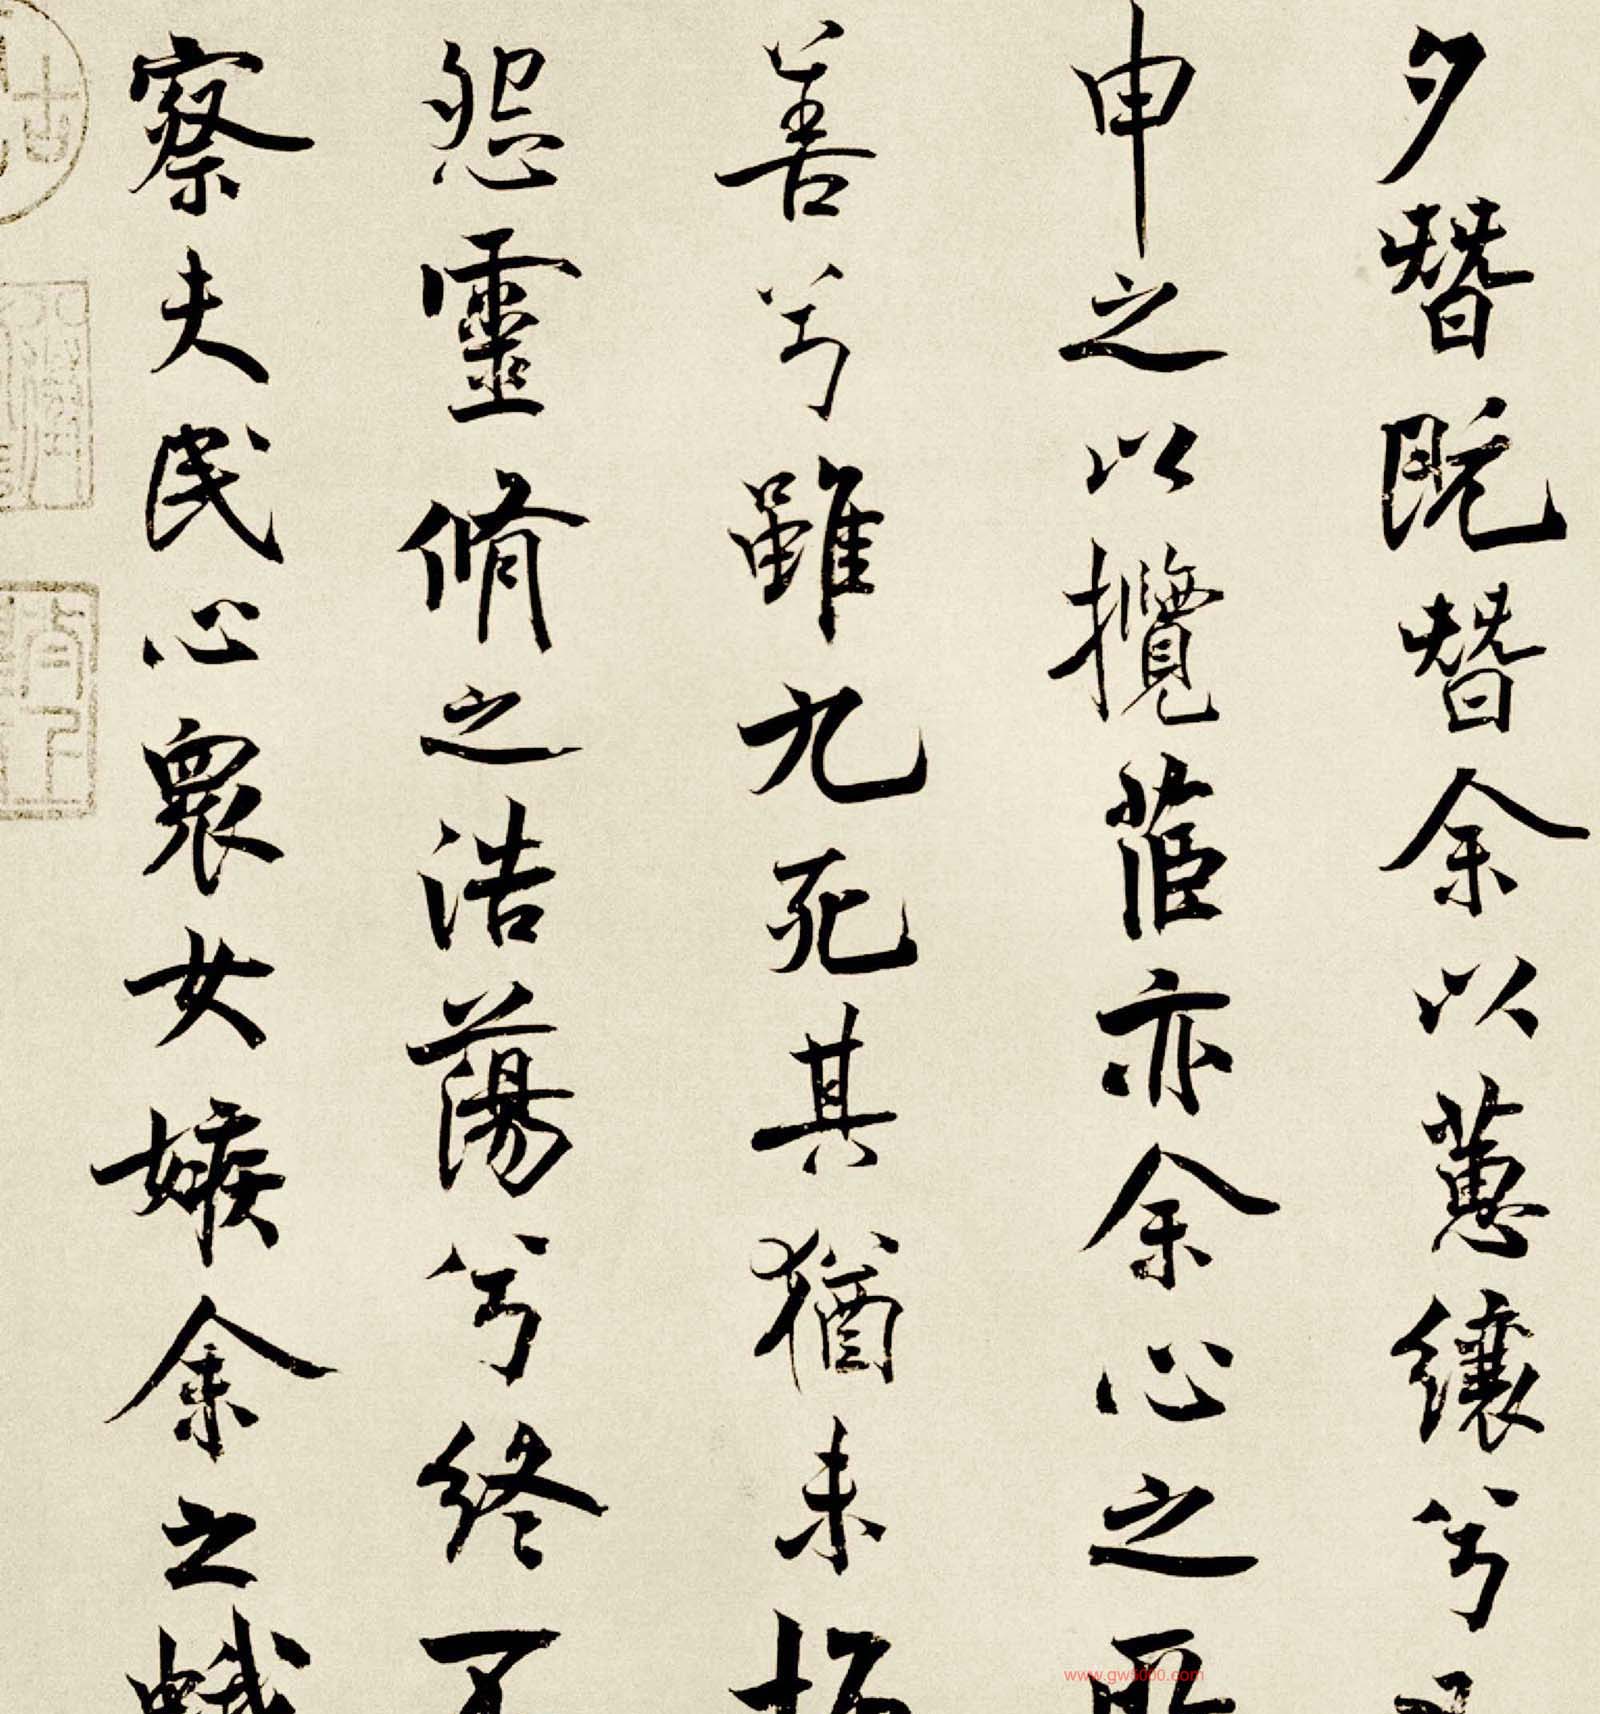 夕朁既朁余以蕙纕兮又
申之以攬茞亦余心之所
善兮雖九死其猶未
怨靈脩之浩蕩兮終不
察夫民心衆女嫉余之蛾
www.gw5000.com